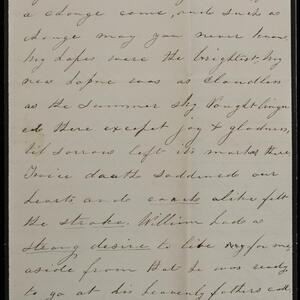 a change come, and such as
change may you never know
My hopes were the brightest, my
new home was as cloudless
as the summer sky Nought linger
ed there except joy & gladness,
til sorrow left its marks there
Twice death saddened our
hearts and each alike felt
the stroke. William had a
strong desire to live for me
aside from that he was ready
to go at his heavenly fathers call